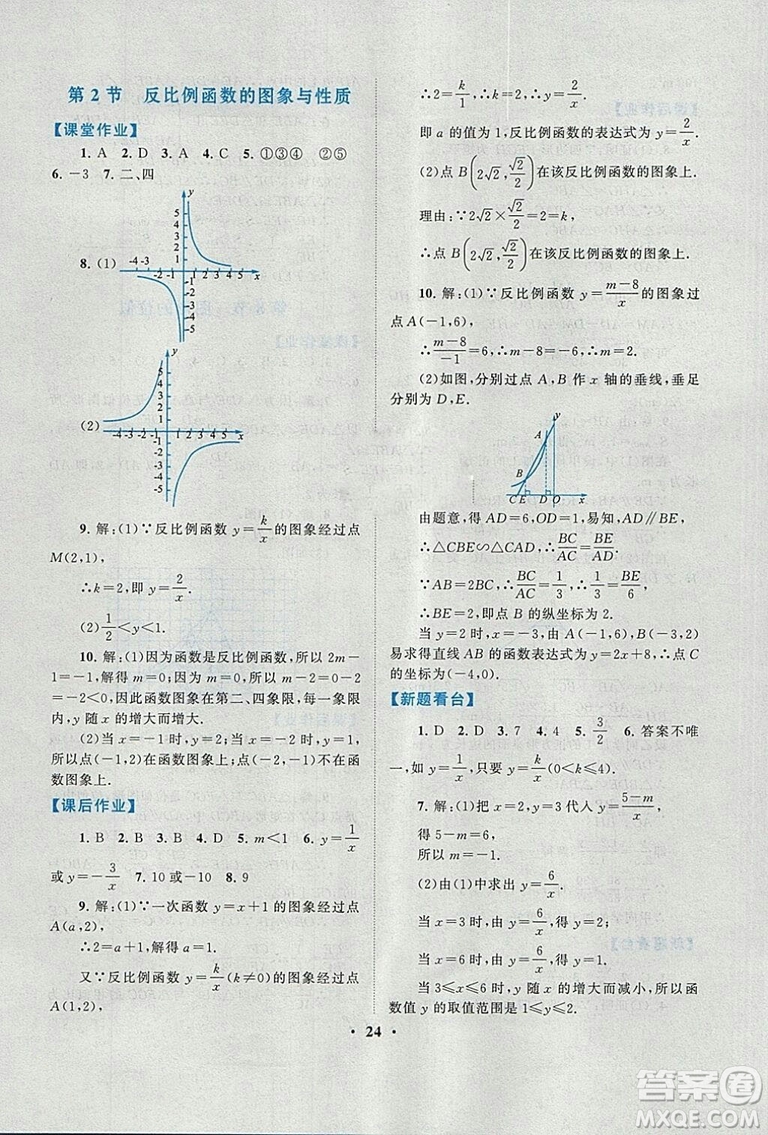 第 2 节　反比例函数的图象与性质
【课堂作业】
1. A　2. D　3. A　4. C　5. ①③④　②⑤
6. －3　7. 二、四
8. (1)
y
5
4
3
2
1
-4 -3
1 2 3 4 5 x
-1
-2
-3
-4
-5
(2)
y
5
4
3
2
1
-4-3-2-1
1 2 3 4 5 x
-1
-2
-3
-4
-5
9. 解：(1)∵反比例函数 y＝k/x 的图象经过点
M(2,1)，
∴k＝2，即 y＝2/x.
(2)1/2＜y＜1.
10. 解：(1)因为函数是反比例函数，所以 2m－
1＝－1，解得 m＝0；因为 m＝0，所以 m－1＝0－1＝
－1，因此函数图象在第二、四象限，每一个象限内，
y 随 x 的增大而增大.
(2)当 x＝－1 时，y＝2；当 x＝－2 时，y＝1，
所以点(－1,2)在函数图象上；点(－1,－2)不在函
数图象上.
【课后作业】
1. B　2. B　3. B　4. D　5. m＜1　6. y＝1/x
或 y＝－3/x　7. 10 或－10　8. 9
9. 解：(1)∵一次函数 y＝x＋1 的图象经过点
A(a,2)，
∴2＝a＋1，解得 a＝1.
又∵反比例函数 y＝k/x(k≠0)的图象经过点
A(1,2)，
∴2＝k/1，∴k＝2，∴y＝2/x.
即 a 的值为 1，反比例函数的表达式为 y＝2/x.
(2)点 B(2√2，√2/2)在该反比例函数的图象上.
理由：∵2√2×√2/2＝2＝k，
∴点 B(2√2，√2/2)在该反比例函数的图象上.
10. 解：(1)∵反比例函数 y＝(m－8)/x 的图象过
点 A(－1,6)，
∴(m－8)/－1＝6，∴m＝2.
(2)如图，分别过点 A、B 作 x 轴的垂线，垂足
分别为 D、E.
y
A
B
C E D O x
由题意，得 AD＝6，OD＝1，易知，AD∥BE，
∴△CBE∽△CAD，∴BC/AC＝BE/AD.
∵AB＝2BC，∴BC/AC＝1/3，∴1/3＝BE/6，
∴BE＝2，即点 B 的纵坐标为 2.
当 y＝2 时，x＝－3，即 B(－3,2)，
易求得直线 AB 的函数表达式为 y＝2x＋8，∴点 C
的坐标为(－4,0).
【新题看台】
1. D　2. D　3. 7　4. 4　5. 3/2　6. 答案不唯
一，如 y＝1/x，只要 y＝k/x(0＜k≤4).
7. 解：(1)把 x＝3，y＝2 代入 y＝(5－m)/x，
得 5－m＝6，
所以 m＝－1.
(2)由(1)中求出 y＝6/x.
当 x＝3 时，由 y＝6/x，得 y＝2；
当 x＝6 时，由 y＝6/x，得 y＝1.
当 3≤x≤6 时，y 随 x 的增大而减小，所以函
数值 y 的取值范围是 1≤y≤2.
• 24 •
答案圈
MXQE.COM